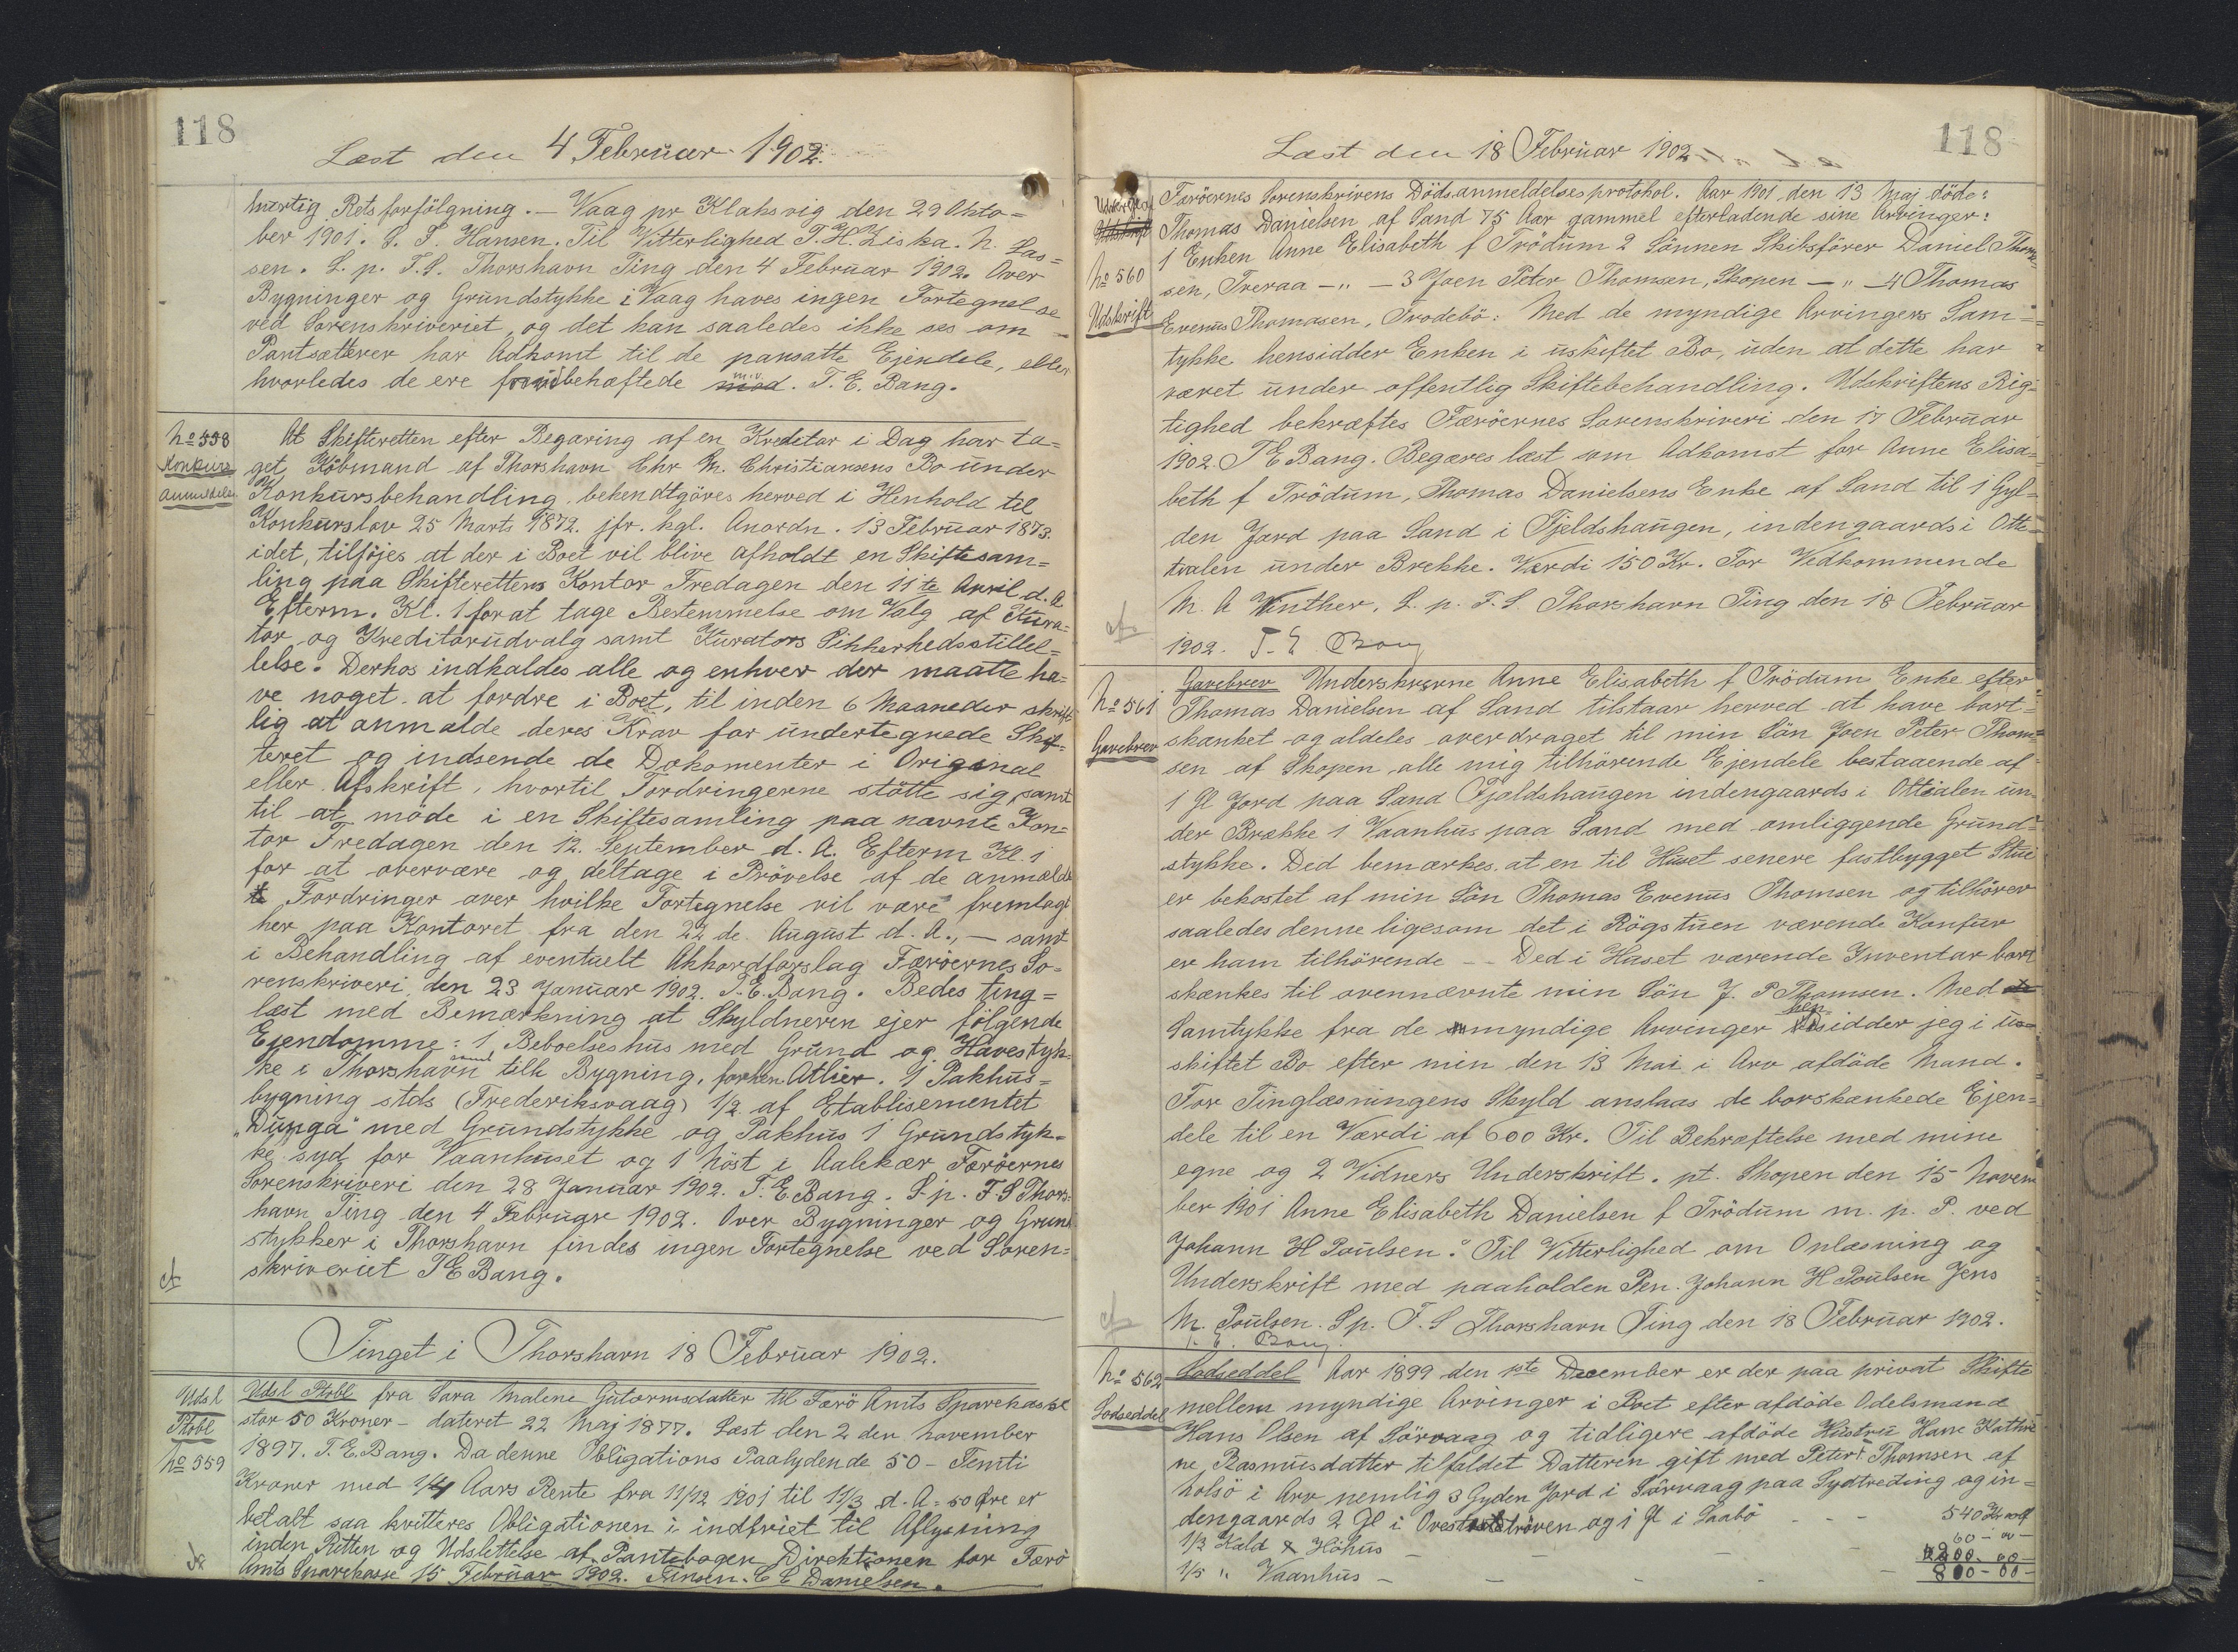 118
Læst den 4 Februar 1902.
hurtig Retsforfölgning. — Vaag pr Klaksvig den 29 Okto=
ber 1901. S. P. Hansen. Til Vitterlighed T. H. Ziska. N. Las=
sen. L. p. F. S. Thorshavn Ting den 4 Februar 1902. Over
Bygninger og Grundstykke i Vaag haves ingen Fortegnelse
ved Sorenskriveriet, og det kan saaledes ikke ses om
Pantsætteren har Adkomt til de pansatte Ejendele, eller
hvorledes de ere forudbehæftede m.v. T. E. Bang.
No 558
Konkurs
anmeldelse
At Skifteretten efter Begæring af en Kreditor i Dag har ta=
get Köbmand af Thorshavn Chr M. Christiansens Bo under
Konkursbehandling, bekendtgöres herved i Henhold til
Konkurslov 25 Marts 1872. jfr. kgl. Anordn. 13 Februar 1873.
idet, tilföjes at der i Boet vil blive afholdt en Skiftesam=
ling paa Skifterettens Kontor Fredagen den 11te April d. A
Efterm. Kl. 1 for at tage Bestemmelse om Valg af Kura=
tor og Kreditorudvalg samt Kurators Sikkerhedsstillel=
lelse. Derhos indkaldes alle og enhver der maatte ha=
ve noget at fordre i Boet, til inden 6 Maaneder skrift
lig at anmelde deres Krav for undertegnede Skif=
teret og indsende de Dokomenter i Original
eller Afskrift, hvortil Fordringerne stötte sig, samt
til at möde i en Skiftesamling paa nævnte Kon=
tor Fredagen den 12. September d. A. Efterm Kl. 1
for at overvære og deltage i Prövelse af de anmeldte
Fordringer over hvilke Fortegnelse vil være fremlagt
her paa Kontoret fra den 22 de August d. A., — samt
i Behandling af eventuelt Akkordforslag Færöernes So=
renskriveri den 23 Januar 1902. T. E. Bang. Bedes ting=
læst med Bemærkning at Skyldneren ejer fölgende
Ejendomme: 1 Beboelseshus med Grund og Havestyk=
ke i Thorshavn samt tilh Bygning, forhen Atlier. 1 Pakhus=
bygning stds (Frederiksvaag) 1/2 af Etablisementet
„Dunga" med Grundstykke og Pakhus 1 Grundstyk=
ke syd for Vaanhuset og 1 Nöst i Aalekær Færöernes
Sorenskriveri den 28 Januar 1902. T. E Bang. L. p. F. S Thors=
havn Ting den 4 Februar 1902. Over Bygninger og Grund
stykker i Thorshavn findes ingen Fortegnelse ved Soren=
skriveriet T E Bang.
Tinget i Thorshavn 18 Februar 1902.
Udsl
Ptobl
No 559
Udsl Ptobl fra Sara Malene Gutormsdatter til Færö Amts Sparekasse
stor 50 Kroner — dateret 22 Maj 1877. Læst den 2 den November
1897. T. E. Bang. Da denne Obligations Paalydende 50 — Femti
Kroner med 1/4 Aars Rente fra 11/12 1901 til 11/3 d. A = 50 Øre er
betalt saa kvitteres Obligationen i indfriet til Aflysning
inden Retten og Udslettelse af Pantebogen Direktionen for Færö
Amts Sparekasse 15 Februar 1902. Jensen. C E Danielsen.
118
Læst den 18 Februar 1902
No 560
Udskrift
Færöernes Sorenskrivens Dödsanmeldelsesprotokol. Aar 1901 den 13 Maj döde:
Thomas Danielsen af Sand 75 Aar gammel efterladende sine Arvinger:
1 Enken Anne Elisabeth f Trödum 2 Sönnen Skibsförer Daniel Thom=
sen, Tveraa — „ — 3 Joen Peter Thomsen, Skopen — „ — 4 Thomas
Evenus Thomasen, Trodebö: Med de myndige Arvingers Sam=
tykke hensidder Enken i uskiftet Bo, uden at dette har
været under offentlig Skiftebehandling. Udskriftens Rig=
tighed bekræftes Færöernes Sorenskriveri den 17 Februar
1902. T E Bang. Begæres læst som Adkomst for Anne Elisa=
beth f Trödum, Thomas Danielsens Enke af Sand til 1 Gyl=
den Jord paa Sand i Fjeldshaugen, indengaards i Otte=
tivalen under Brekke. Værdi 150 Kr. For Vedkommende
M. A Winther. L. p. F. S. Thorshavn Ting den 18 Februar
1902. T. E. Bang
No 561
Gavebrev
Gavebrev Underskrevne Anne Elisabeth f Trödum Enke efter
Thomas Danielsen af Sand tilstaar herved at have bort=
skænket og aldeles overdraget til min Sön Joen Peter Thom=
sen af Skopen alle mig tilhörende Ejendele bestaaende af
1 Gl Jord paa Sand Fjoldshaugen indengaards i Ottialen un=
der Brække 1 Vaanhus paa Sand med omliggende Grund=
stykke. Ded bemærkes at en til Huset senere fastbygget Stue
er bekostet af min Sön Thomas Evenus Thomsen og tilhörer
saaledes denne ligesom det i Rögstuen værende Konfur
er ham tilhörende — Ded i Huset værende Inventar bort
skænkes til ovennævnte min Sön J. P Thomsen. Med
Samtykke fra de myndige Arvinger hensidder jeg i us=
skiftet Bo efter min den 13 Mai i Aar afdöde Mand.
For Tinglæsningens Skyld anslaas de borskænkede Ejen=
dele til en Værdi af 600 Kr. Til Bekræftelse med mine
egne og 2 Vidners Underskrift. pt. Skopen den 15 Novem
ber 1901 Anne Elisabeth Danielsen f Trödum m. p. P. ved
Johann H Poulsen. Til Vitterlighed om Oplæsning og
Underskrift med paaholden Pen. Johann H Poulsen Jens
M. Poulsen. L p. F. S Thorshavn Ting den 18 Februar 1902.
T. E. Bang.
No 562
Lodseddel
Lodseddel Aar 1899 den 1ste December er der paa privat Skifte
mellem myndige Arvinger i Boet efter afdöde Odelsmand
Hans Olsen af Sörvaag og tidligere afdöde Hustru Hane Kathri
ne Rasmusdatter tilfaldet Datteren gift med Peter Thomsen af
Kolsö i Arv nemlig 3 Gyden Jord i Sörvaag paa Sydtreding og in=
dengaards 2 Gl i Ovest tröven og 1 Gl i Saabö - - - 540 Kr
1/3 Kald Höhus — — — 60 —
1/5 „ Vaanhus — — — 200. 00
800 - 00 -